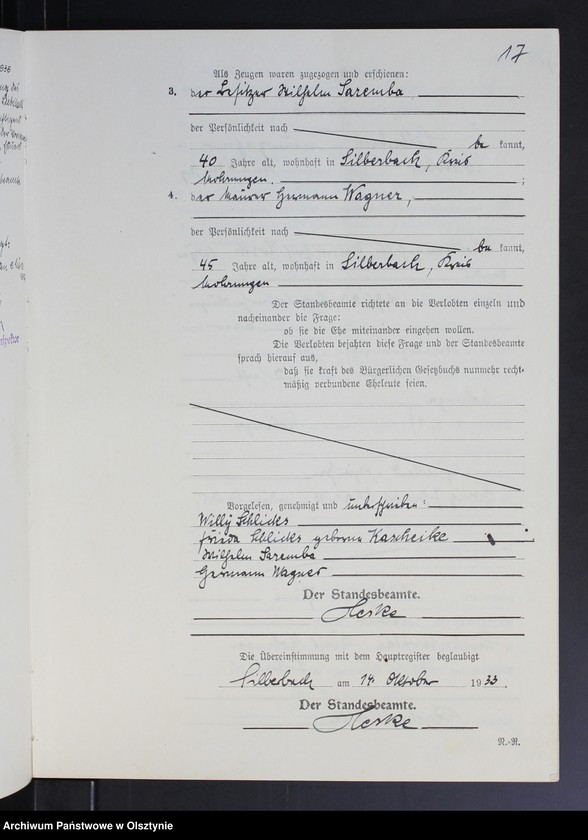 17
Als Zeugen waren zugezogen und erschienen:
3. der Besitzer Wilhelm Saremba
der Persönlichkeit nach
be kannt,
40 Jahre alt, wohnhaft in Silberbach, Kreis
Mohrungen. ;
4. der Maurer Hermann Wagner,
der Persönlichkeit nach
be kannt,
45 Jahre alt, wohnhaft in Silberbach, Kreis
Mohrungen
Der Standesbeamte richtete an die Verlobten einzeln und
nacheinander die Frage:
ob sie die Ehe miteinander eingehen wollen.
Die Verlobten bejahten diese Frage und der Standesbeamte
sprach hierauf aus,
daß sie kraft des Bürgerlichen Gesetzbuchs nunmehr recht-
mäßig verbundene Eheleute seien.
Vorgelesen, genehmigt und unterschrieben:
Willy Schlicks
Frieda Schlicks geborene Kascheike
Wilhelm Saremba
Hermann Wagner
Der Standesbeamte.
Heske
Die Übereinstimmung mit dem Hauptregister beglaubigt
Silberbach am 14. Oktober 1933.
Der Standesbeamte.
Heske
N.-R.
Archiwum Państwowe w Olsztynie